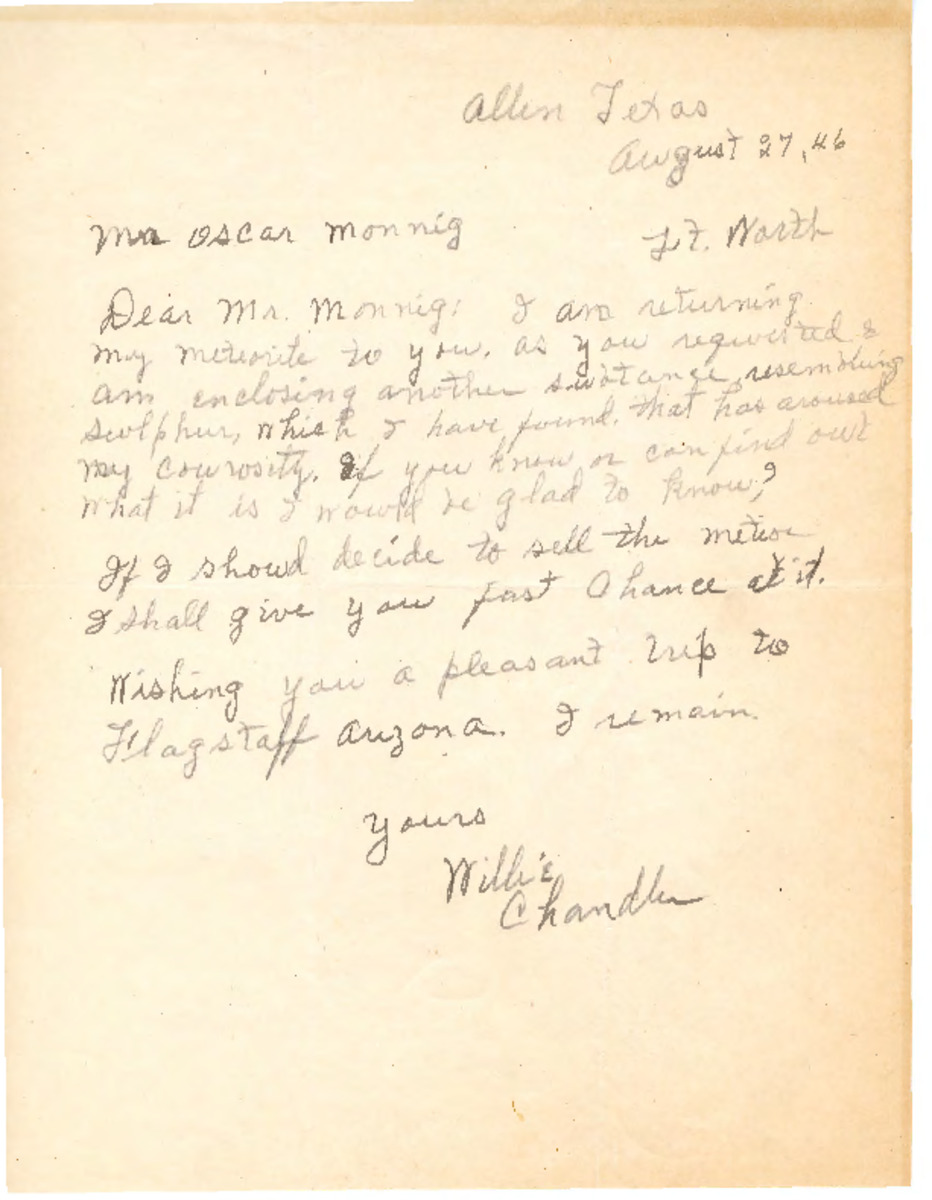 Allen Texas
August 27, 46
Mr Oscar Monnig Ft. Worth
Dear Mr. Monnig: I am returning
my meteorite to you, as you requested &
am enclosing another substance, resembling
sulphur, which I have found, that has aroused
my courosity. If you know or can find out
what it is I would be glad to know?
If I shoud decide to sell the meteor
I shall give you fust Chance at it.
Wishing you a pleasant trip to
Flagstaff Arizona. I remain.
Yours
Willie
Chandler